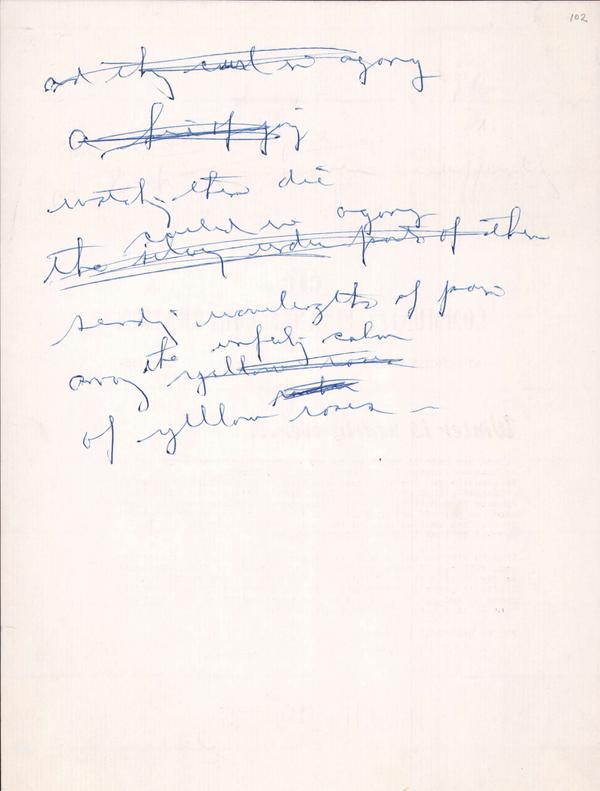 102
and they curl in agony
a
watching them die
curled in agony
the silvery under parts of them
sending wavelengths of pain
among the unfeeling calm
yellow roses
of yellow roses —